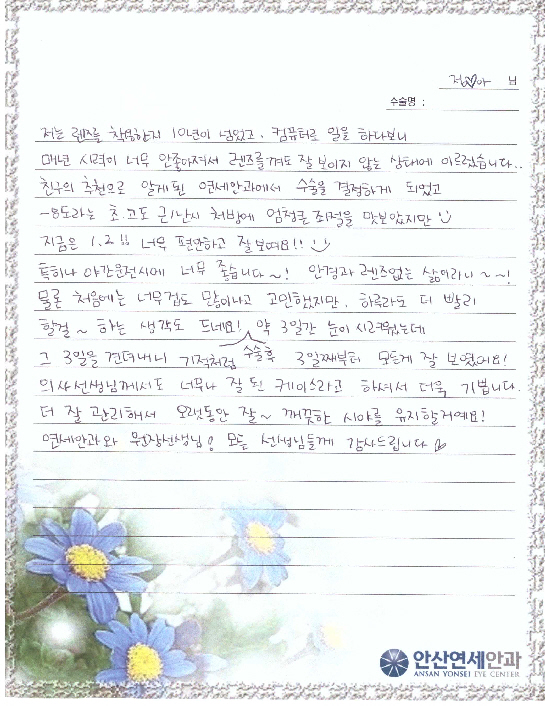 정♡아 님
수술명 :
저는 렌즈를 착용한지 10년이 넘었고, 컴퓨터로 일을 하다보니
매년 시력이 너무 안좋아져서 렌즈를껴도 잘 보이지 않는 상태에 이르렀습니다..
친구의 추천으로 알게된 연세안과에서 수술을 결정하게 되었고
-8도라는 초.고도 근/난시 처방에 엄청큰 좌절을 맛보았지만
지금은 1.2!! 너무 편안하고 잘보여요!!
특히나 야간운전시에 너무 좋습니다~! 안경과 렌즈없는 삶이라니~~!
물론 처음에는 너무겁도 많이나고 고민했지만, 하루라도 더 빨리
할걸~ 하는 생각도 드네요! 약 3일간 눈이 시려웠는데
그 3일을 견뎌내니 기적처럼 수술후 3일째부터 모든게 잘 보였어요!
의사선생님께서도 너무나 잘 된 케이스라고 하셔서 더욱 기쁩니다.
더 잘 관리해서 오랫동안 잘~ 깨끗한 시야를 유지할거예요!
연세안과와 원장선생님! 모든 선생님들께 감사드립니다
안산연세안과
ANSAN YONSEI EYE CENTER